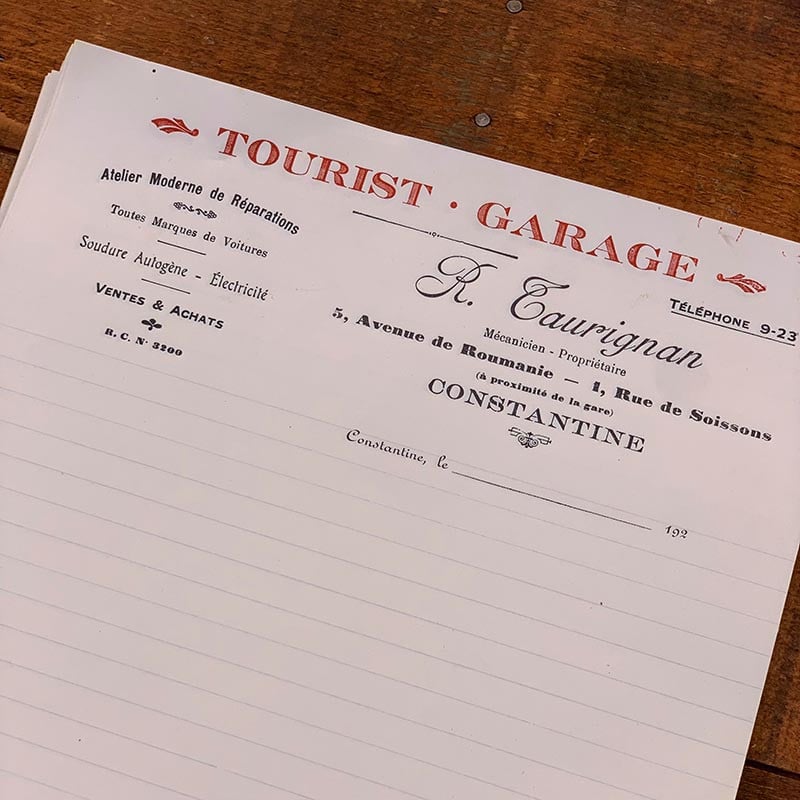 TOURIST · GARAGE
Atelier Moderne de Réparations
Toutes Marques de Voitures
Soudure Autogène - Électricité
VENTES & ACHATS
R. C. N° 3200
TÉLÉPHONE 9-23
R. Taurignan
Mécanicien - Propriétaire
5, Avenue de Roumanie — 1, Rue de Soissons
(à proximité de la gare)
CONSTANTINE
Constantine, le 192